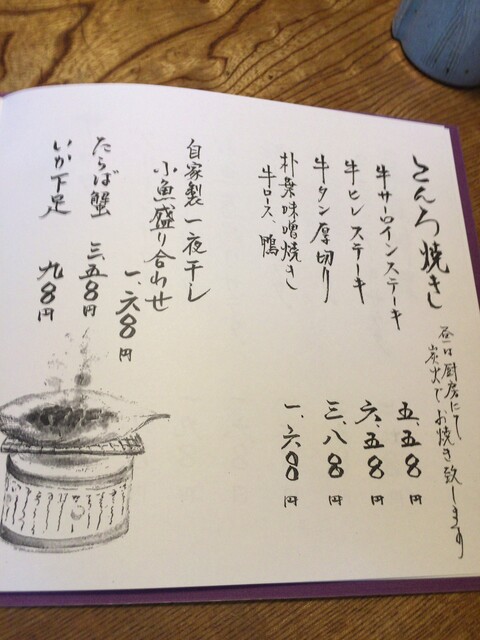 こんろ焼き
昼は厨房にて
炭火でお焼き致します
牛サーロインステーキ 五、五〇〇円
牛ヒレステーキ 六、五〇〇円
牛タン厚切り 三、八〇〇円
朴葉味噌焼き 一、六〇〇円
牛ロース、鴨
自家製一夜干し
小魚盛り合わせ
一、六〇〇円
たらば蟹 三、五〇〇円
いか下足 九〇〇円